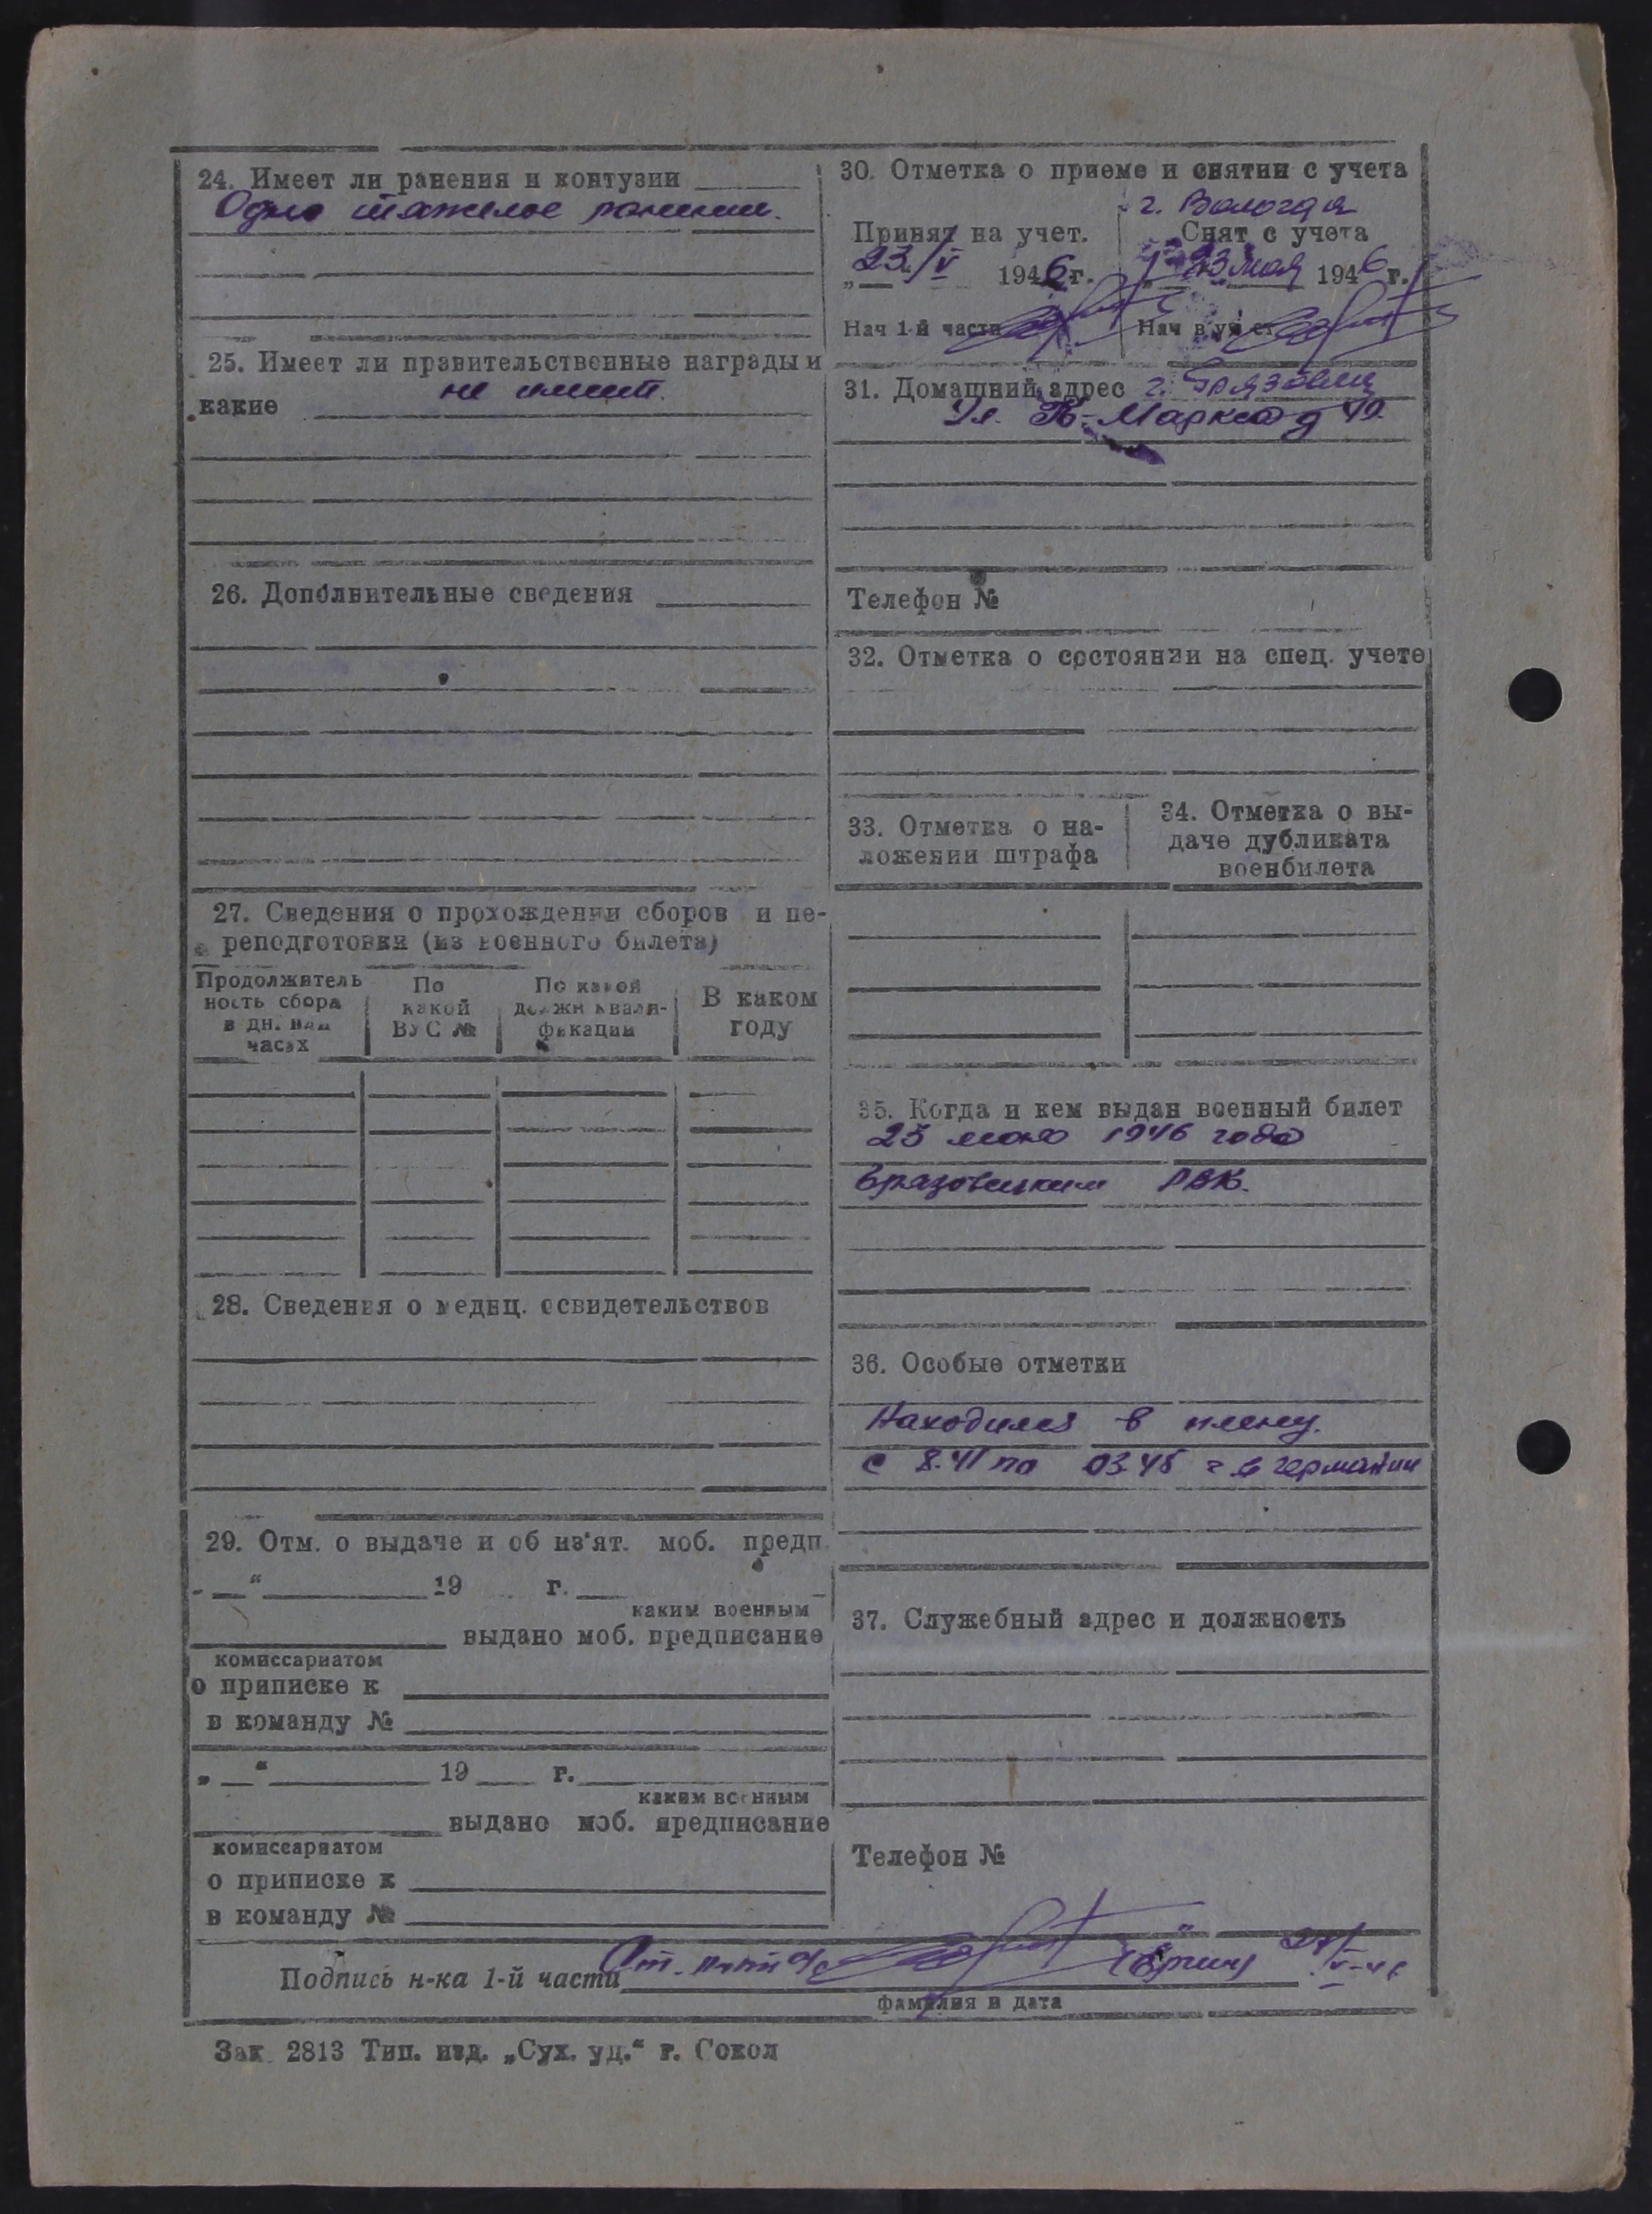 24. Имеет ли ранения и контузии
Одно тяжелое ранение.
25. Имеет ли правительственные награды и
какие не имеет.
26. Дополнительные сведения
27. Сведения о прохождении сборов и пе-
реподготовки (из военного билета)
Продолжитель
ность сбора
в дн. или
часах
По
какой
ВУС №
По какой
должн квали-
фикации
В каком
году
28. Сведения о медиц. освидетельствов
29. Отм. о выдаче и об из'ят. моб. предп.
„ “ 19 г.
каким военным
выдано моб. предписание
комиссариатом
о приписке к
в команду №
„ “ 19 г.
каким военным
выдано моб. предписание
комиссариатом
о приписке к
в команду №
30. Отметка о приеме и снятии с учета
г. Вологда
Принят на учет.
23/V 1946 г.
Нач 1-й части
Снят с учета
23 мая 1946 г.
Нач
31. Домашний адрес г. Грязовец
Ул. К-Маркса д 49.
Телефон №
32. Отметка о состоянии на спец. учете
33. Отметка о на-
ложении штрафа
34. Отметка о вы-
даче дубликата
военбилета
35. Когда и кем выдан военный билет
1946 года
Грязовецким РВК.
36. Особые отметки
Находился в плену.
с 8.41 по 03.45 г в германии
37. Служебный адрес и должность
Телефон №
Подпись н-ка 1-й части
фамилия и дата
Зак. 2813 Тип. изд. „Сух. уд.“ г. Сокол